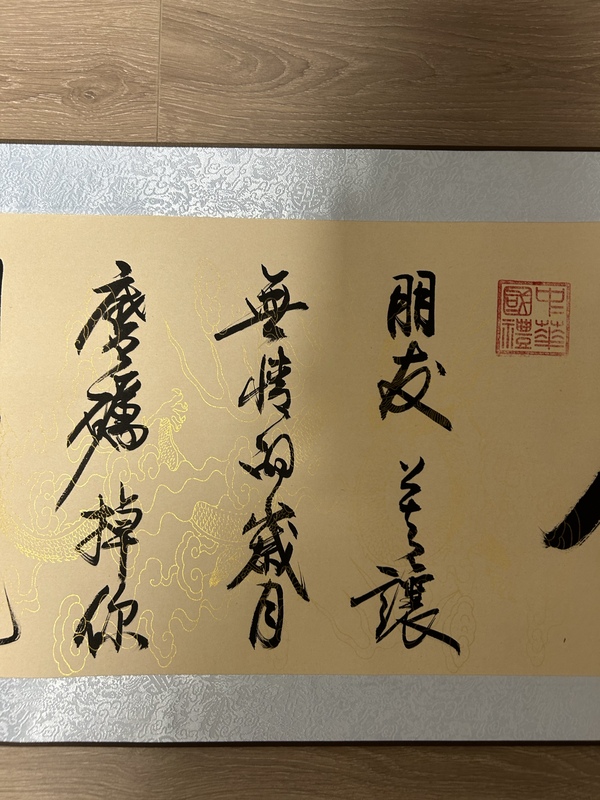 中華國禮
朋友 莫讓
無情的歲月
磨礪掉你